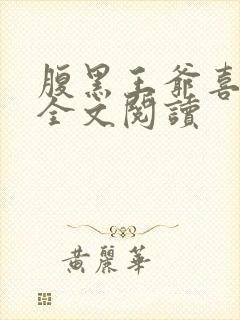 腹黑王爺喜
全文閱讀
黃麗華